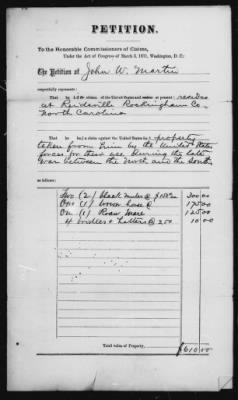 PETITION.
To the Honorable Commissioners of Claims,
Under the Act of Congress of March 3, 1871, Washington, D. C.:
The Petition of John W. Martin
respectfully represents:
That he is a citizen of the United States and resides
at Reidsville Rockingham Co
North Carolina
That he has a claim against the United States for property
taken from him by the United States
forces for their use during the late
War between the North and the South
Two (2) black mules @ $150 00 300 00
One (1) brown horse @ 175 00
One (1) Roan mare 125 00
4 bridles & halters @ 2 50 10 00
Total value of Property,
$610 00